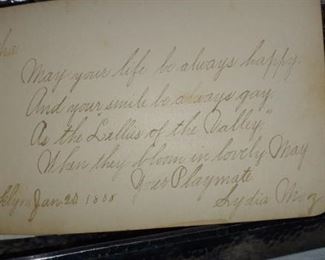 May your life be always happy.
And your smile be always gay
As the "Lellus of the Valley,"
When they bloom in lovely May
Your Playmate
Jan. 20 18
Lydia